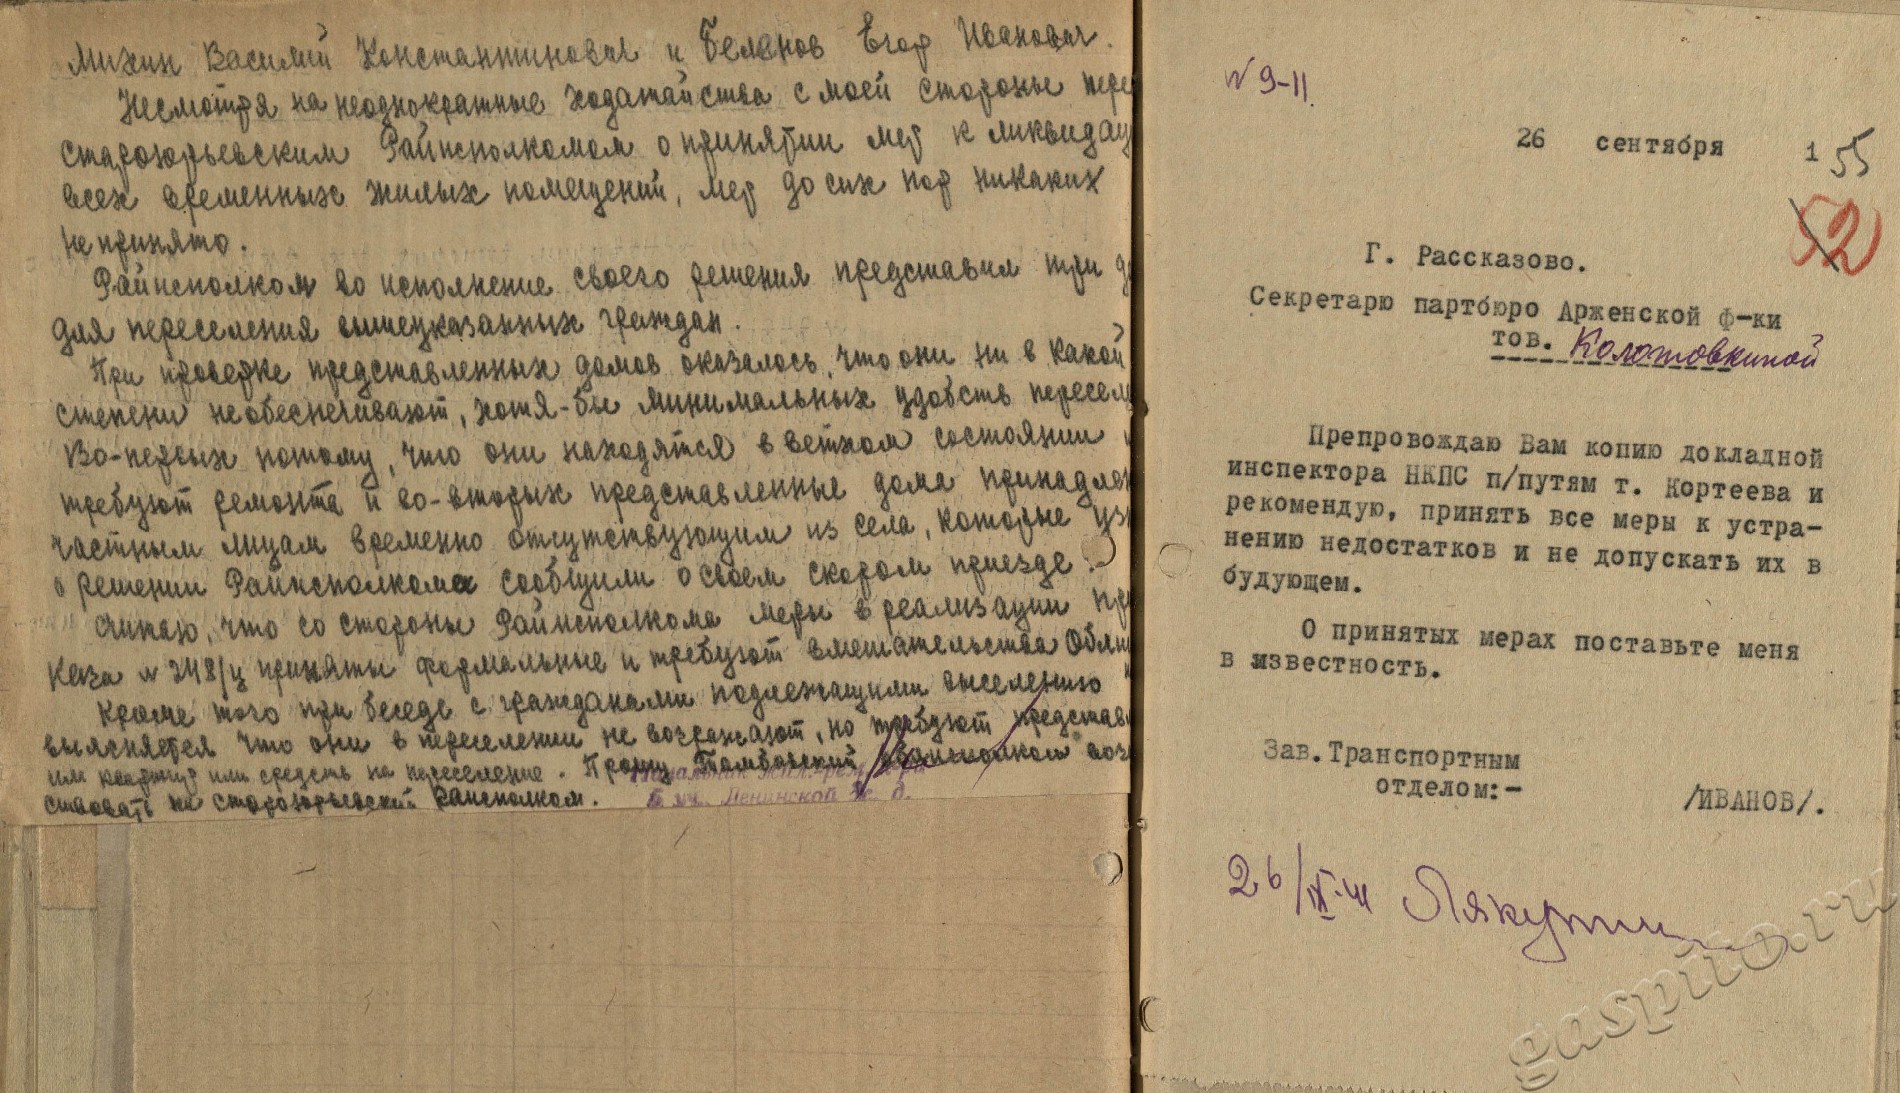 Михин Василий Константинович и Беленов Егор Иванович.
Несмотря на неоднократные ходатайства с моей стороны пере
староюрьевским Райисполкомом о принятии мер к ликвидац
всех временных жилых помещений, мер до сих пор никаких
не принято.
Райисполком во исполнение своего решения представил три д
для переселения вышеуказанных граждан.
При проверке представленных домов оказалось, что они ни в какой
степени не обеспечивают, хотя-бы минимальных удобств пересел
Во-первых потому, что они находятся в ветхом состоянии и
требуют ремонта и во-вторых представленные дома принадлеж
частным лицам временно отсутствующим из села, которые уз
о решении Райисполкома сообщили о своем скором приезде.
Считаю, что со стороны Райисполкома меры в реализации при
каза № 248/ц приняты формальные и требуют вмешательства Обли
Кроме того при беседе с гражданами подлежащими выселению
выясняется что они в переселении не возражают, но требуют представ
им квартир или средств на переселение. Прошу Тамбовский воз
ствовать на староюрьевский райисполком.
Начальник
5 уч. Ленинской ж. д.
N 9-11.
26 сентября 1
55
52
Г. Рассказово.
Секретарю партбюро Арженской ф-ки
тов. Колотовкиной
Препровождаю Вам копию докладной
инспектора НКПС п/путям т. Кортеева и
рекомендую, принять все меры к устра-
нению недостатков и не допускать их в
будующем.
О принятых мерах поставьте меня
в известность.
Зав.Транспортным
отделом:-
/ИВАНОВ/.
26/IX-41
gaspito.ru